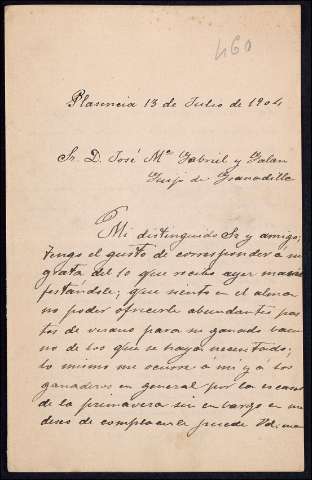 460
Plasencia 13 de Julio de 1904
Sr. D. José Mª Gabriel y Galan
Guijo de Granadilla
Mi distinguido Sr y amigo;
tengo el gusto de corresponder á su
grata del 10 que recibo ayer mani
festándole; que siento en el alma
no poder ofrecerle abundantes pas
tos de verano para su ganado bacu
no de los que se haya necesitado;
lo mismo me ocurre á mi y á los
ganaderos en general por la escases
de la primavera sin envargo en mi
deseo de complacerle puede Vd. man